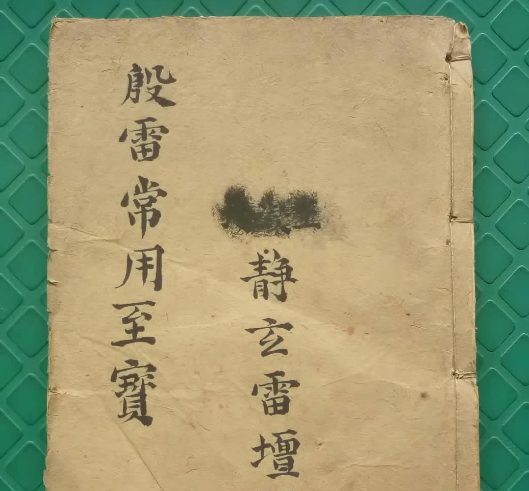 静玄雷壇
殷雷常用至寶